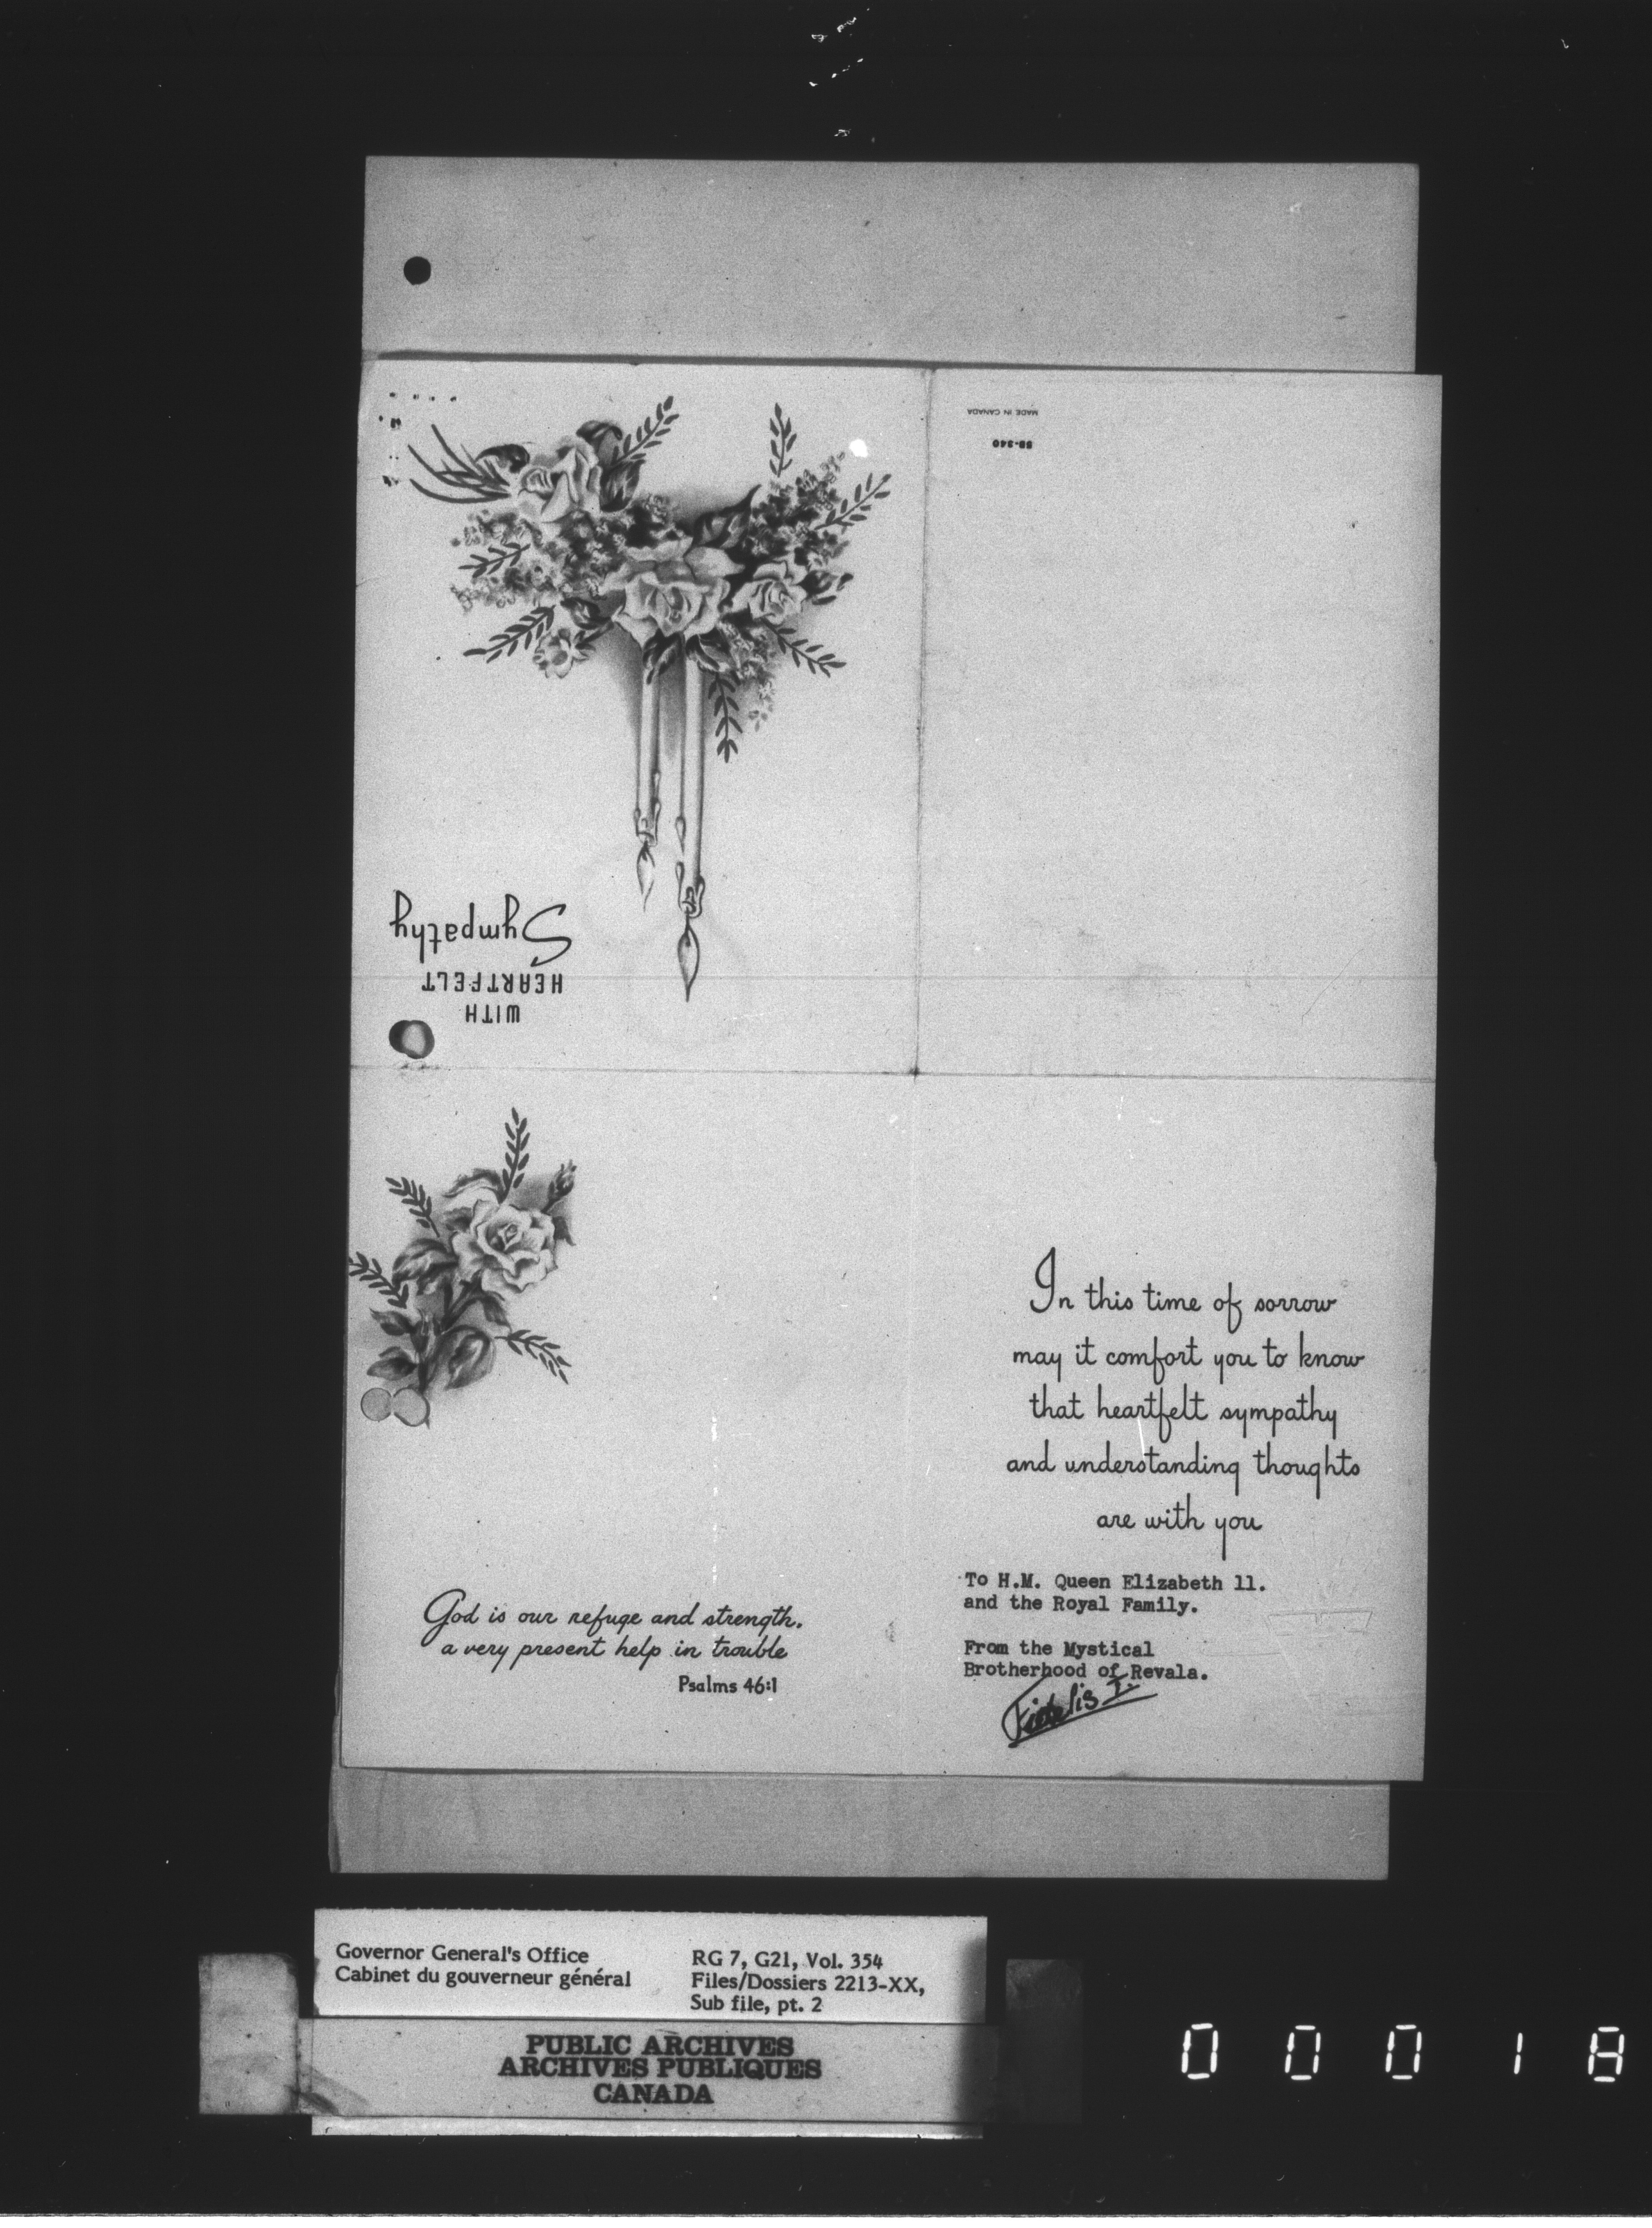 MADE IN CANADA
88-240
WITH
HEARTFELT
Sympathy
In this time of sorrow
may it comfort you to know
that heartfelt sympathy
and understanding thoughts
are with you
God is our refuge and strength.
a very present help in trouble
Psalms 46:1
To H.M. Queen Elizabeth ll.
and the Royal Family.
From the Mystical
Brotherhood of Revala.
Fidelis I.
Governor General's Office
Cabinet du gouverneur général
RG 7, G21, Vol. 354
Files/Dossiers 2213-XX,
Sub file, pt. 2
PUBLIC ARCHIVES
ARCHIVES PUBLIQUES
CANADA
00018